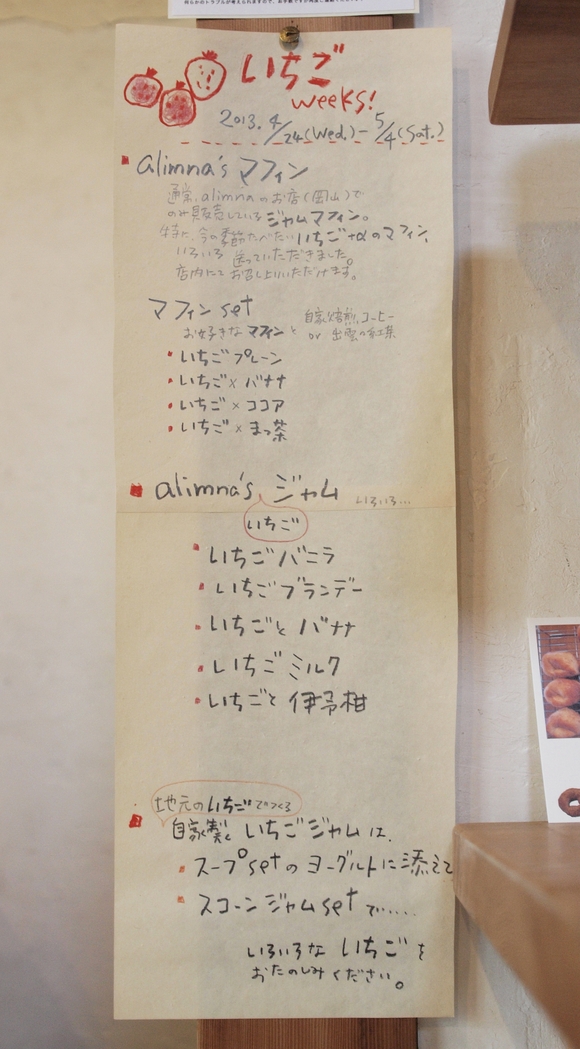 何らかのトラブルが考えられますので、お手数ですが
いちご
weeks!
2013. 4/24(Wed.) - 5/4(Sat.)
alimna's マフィン
通常、alimnaのお店(岡山)で
のみ販売しているジャムマフィン。
特に、今の季節たべたいいちご+αのマフィン、
いろいろ 送っていただきました。
店内にてお召し上がりいただけます。
マフィン set
お好きなマフィンと 自家焙煎コーヒー
or 出雲の紅茶
いちごプレーン
いちご×バナナ
いちご×ココア
いちご×まっ茶
alimna's ジャム いろいろ…
いちご
いちごバニラ
いちごブランデー
いちごとバナナ
いちごミルク
いちごと伊予柑
地元のいちごでつくる
自家製 いちごジャムは、
スープsetのヨーグルトに添えて
スコーンジャムsetで……
いろいろな いちごを
おたのしみください。